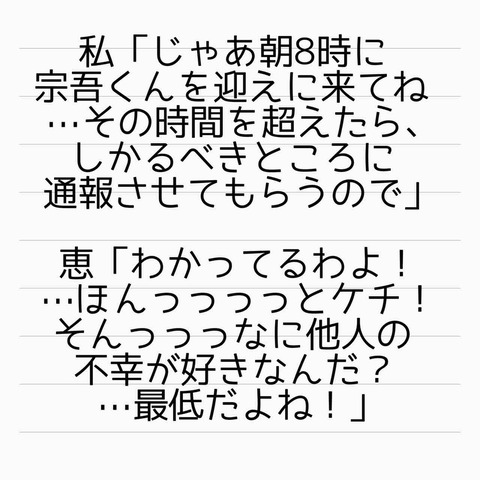 私「じゃあ朝8時に
宗吾くんを迎えに来てね
…その時間を超えたら、
しかるべきところに
通報させてもらうので」
恵「わかってるわよ！
…ほんっっっっとケチ！
そんっっっなに他人の
不幸が好きなんだ？
…最低だよね！」